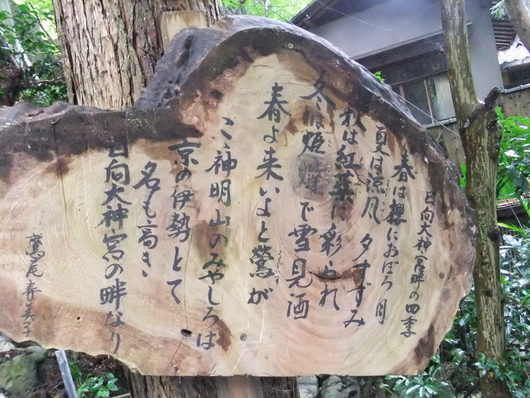 日向大神宮畔の四季
春は櫻におぼろ月
夏は涼風夕すずみ
秋は紅葉に彩られ
冬は炬燵で雪見酒
春よ来いよと鶯が
ここ神明山のみやしろは
京の伊勢とて
名も高き
日向大神宮の畔なり
鷲尾